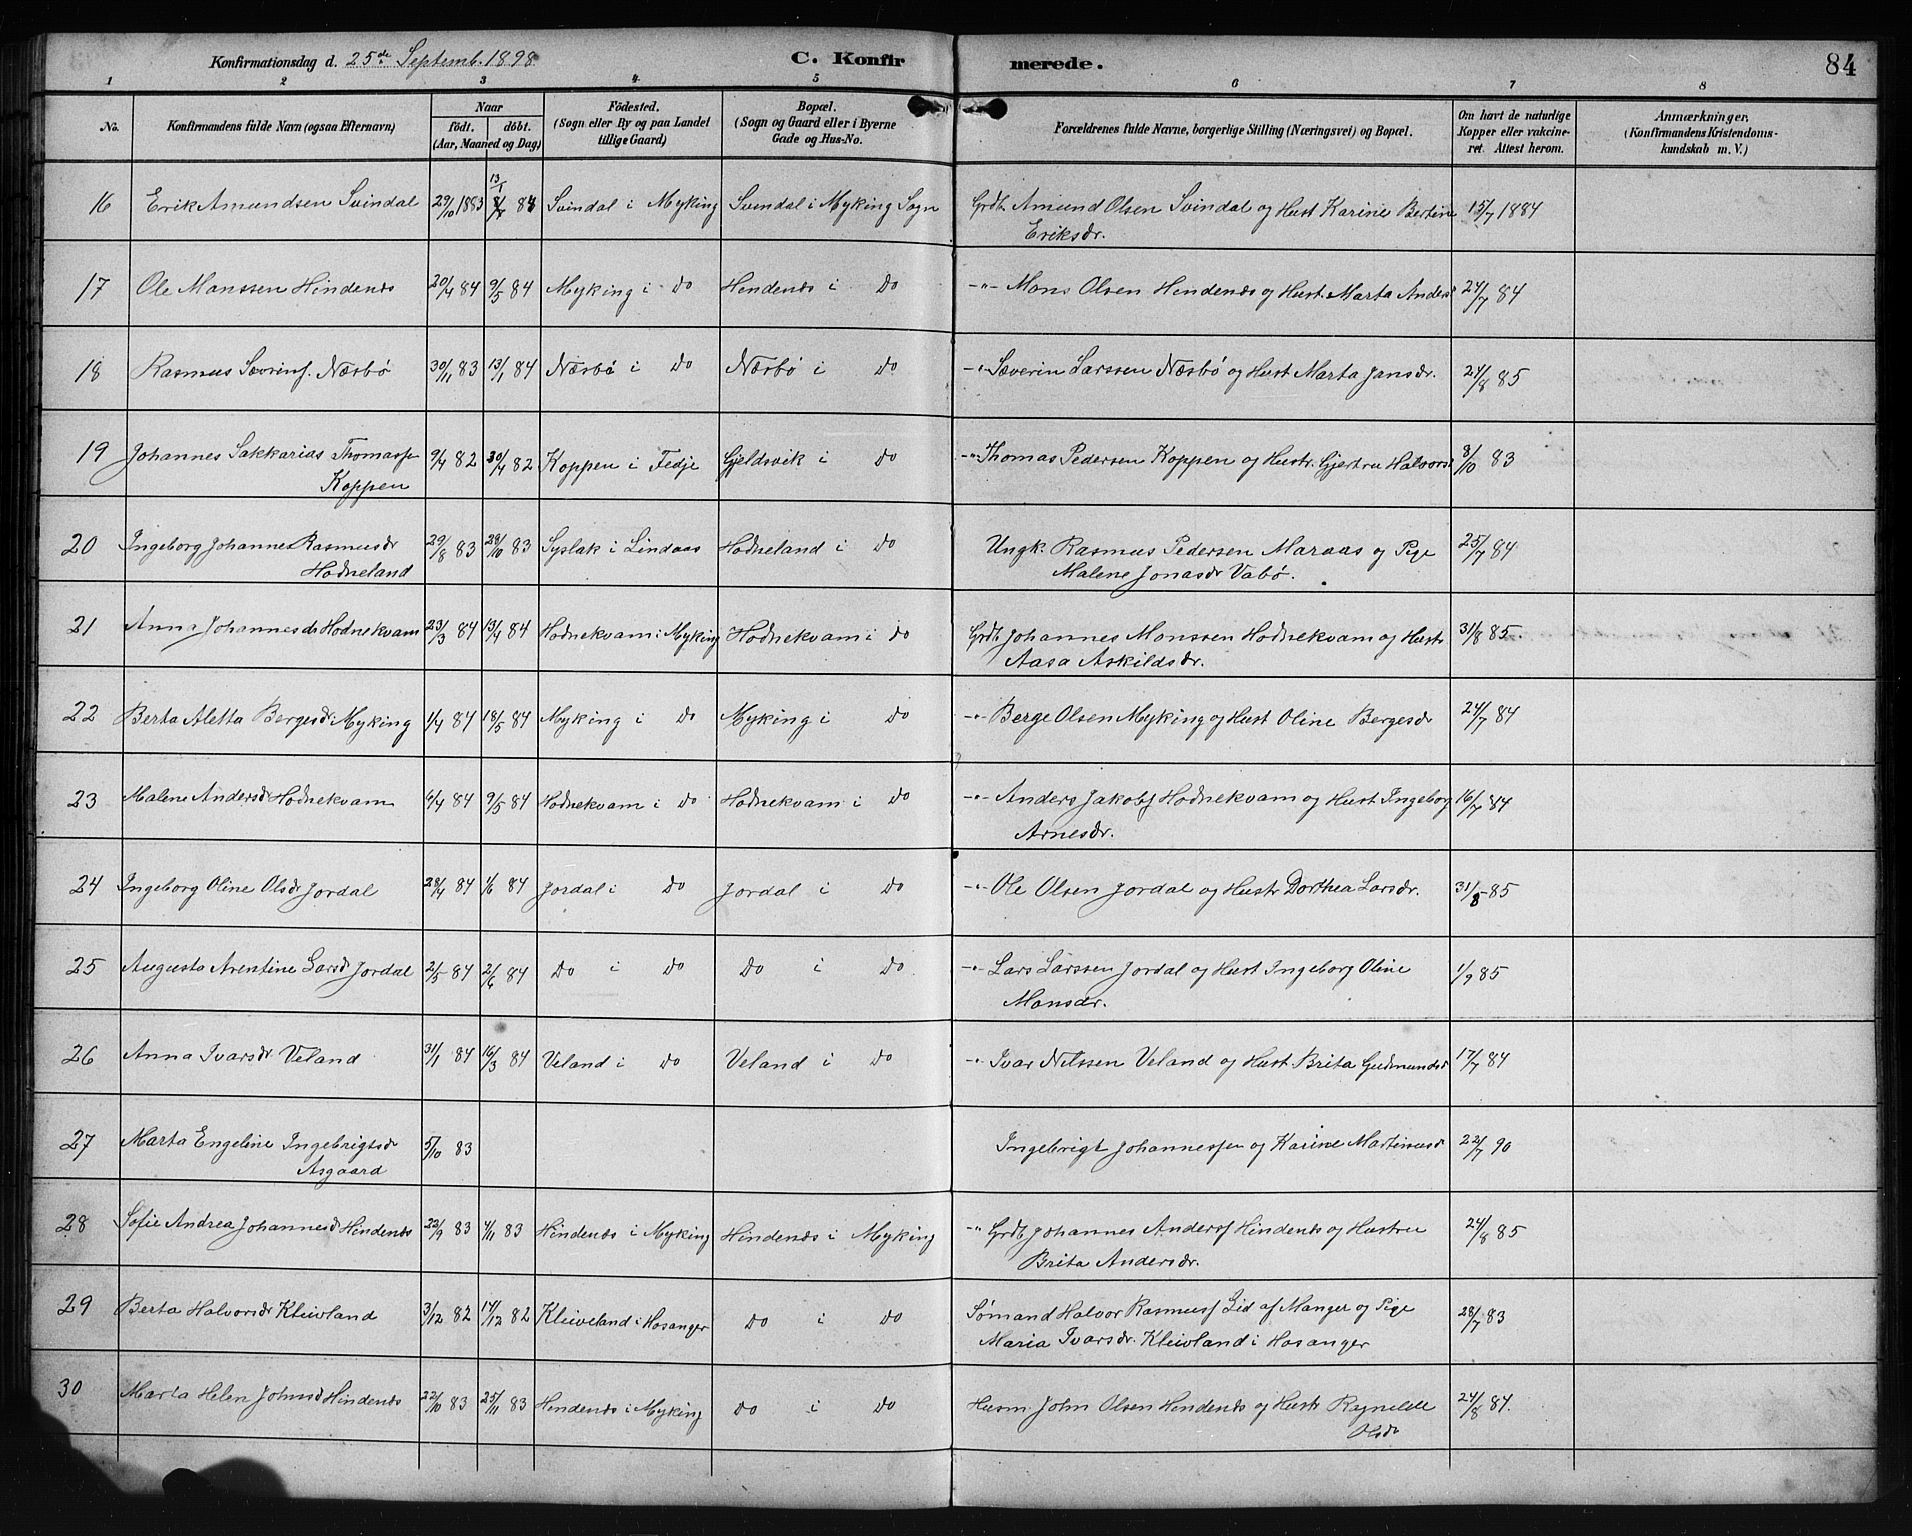 Konfirmationsdag d. 25de Septemb. 1898. C. Konfirmerede. 84
1 2 3 4 5 6 7 8
No. Konfirmandens fulde Navn (ogsaa Efternavn) Naar født. døbt. (Aar, Maaned og Dag) Fødested. (Sogn eller By og paa Landet tillige Gaard) Bopæl. (Sogn og Gaard eller i Byerne Gade og Hus-No. Forældrenes fulde Navne, borgerlige Stilling (Næringsvei) og Bopæl. Om havt de naturlige Kopper eller vakcineret. Attest herom. Anmærkninger. (Konfirmandens Kristendomskundskab m. V.)
16 Erik Amundsen Svindal 29/10 1883 13/1 84 Svindal i Myking Svindal i Myking Sogn Grdb. Amund Olsen Svindal og Hust Karine Bertine 15/7 1884
Eriksdr.
17 Ole Monssen Hindenes 20/4 84 9/5 84 Myking i Do Hindenes i Do -"- Mons Olsen Hindenes og Hust. Marta Andersd 24/7 84
18 Rasmus Severins. Næsbø 30/11 83 13/1 84 Næsbø i Do Næsbø i Do -"- Severin Larssen Næsbø og Hust Marta Jansdr. 24/8 85
19 Johannes Sakkarias Thomassen 9/4 82 30/4 82 Koppen i Fedje Gjeldsvik i Do -"- Thomas Pedersen Koppen og Hustr. Gjertru Halvorsd 8/10 83
Koppen
20 Ingeborg Johanne Rasmusdr 29/8 83 28/10 83 Syslak i Lindaas Hodneland i Do Ungk. Rasmus Pedersen Maraas og Pige 25/7 84
Hodneland Malene Jonasdr Vabø.
21 Anna Johannesdr Hodnekvam 23/3 84 13/4 84 Hodnekvam i Myking Hodnekvam i Do Grdb Johannes Monssen Hodnekvam og Hustr 31/8 85
Aasa Askildsdr.
22 Berta Aletta Bergesdr Myking 1/4 84 18/5 84 Myking i Do Myking i Do -"- Berge Olsen Myking og Hust Oline Bergesdr 24/7 84
23 Malene Andersdr Hodnekvam 6/4 84 9/5 84 Hodnekvam i Do Hodnekvam i Do -"- Anders Jakobs Hodnekvam og Hust Ingeborg 16/7 84
Arnesdr.
24 Ingeborg Oline Olsdr Jordal 28/4 84 1/6 84 Jordal i Do Jordal i Do -"- Ole Olsen Jordal og Hustr Dorthea Larsdr. 31/8 85
25 Augusta Arentine Larsdr Jordal 2/5 84 2/6 84 Do i Do Do i Do -"- Lars Larssen Jordal og Hust Ingeborg Oline 1/9 85
Monsdr.
26 Anna Ivarsdr Veland 31/1 84 16/3 84 Veland i Do Veland i Do -"- Ivar Nilssen Veland og Hust Brita Gudmundsd 17/7 84
27 Marta Engeline Ingebrigtsdr 5/10 83 Ingebrigt Johannessen og Karine Martinusdr 22/7 90
Asgaard
28 Sofie Andrea Johannesdr Hindenes 22/9 83 4/11 83 Hindenes i Myking Hindenes i Myking -"- Grdb Johannes Anders Hindenes og Hustru 24/8 85
Brita Andersdr.
29 Berta Halvorsdr Kleivland 3/12 82 17/12 82 Kleiveland i Hosanger Do i Do Sømand Halvor Rasmuss Lid af Manger og Pige 28/7 83
Maria Ivarsdr. Kleivland i Hosanger
30 Marta Helen Johnsdr Hindenes 22/10 83 25/11 83 Hindenes i Myking Do i Do Husm. John Olsen Hindenes og Hustr Regnilde 24/8 84.
Olsdr